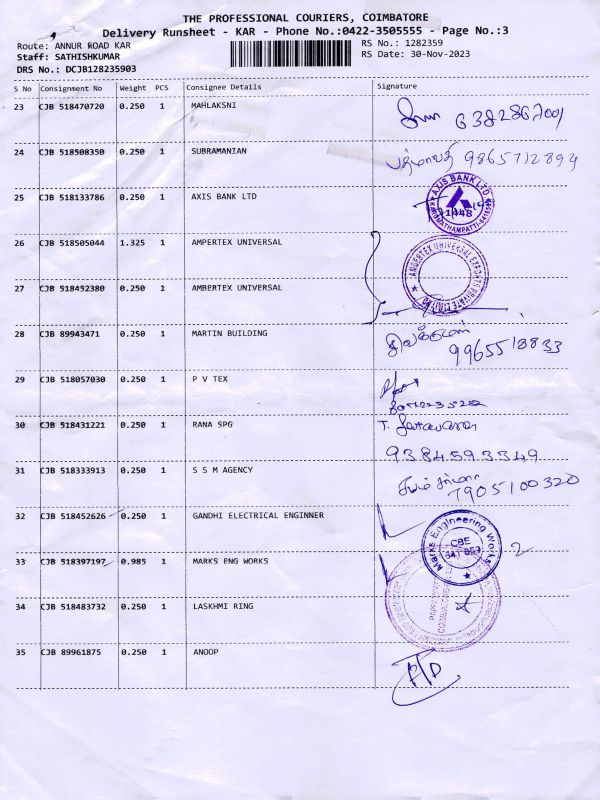 THE PROFESSIONAL COURIERS, COIMBATORE
Delivery Runsheet - KAR - Phone No.:0422-3505555 - Page No.:3
Route: ANNUR ROAD KAR
RS No.: 1282359
Staff: SATHISHKUMAR
RS Date: 30-Nov-2023
DRS No.: DCJB128235903
S No Consignment No Weight PCS Consignee Details Signature
23 CJB 518470720 0.250 1 MAHLAKSNI
24 CJB 518508350 0.250 1 SUBRAMANIAN பத்மாவதி 9865712894
25 CJB 518133786 0.250 1 AXIS BANK LTD AXIS BANK LTD 1448
26 CJB 518505044 1.325 1 AMPERTEX UNIVERSAL
27 CJB 518452380 0.250 1 AMBERTEX UNIVERSAL AMBERTEX UNIVERSAL EXPORTS PRIVATE LIMITED
28 CJB 89943471 0.250 1 MARTIN BUILDING 9965518833
29 CJB 518057030 0.250 1 P V TEX
30 CJB 518431221 0.250 1 RANA SPG T. Saravanan
9384593349
31 CJB 518333913 0.250 1 S S M AGENCY 7905100320
32 CJB 518452626 0.250 1 GANDHI ELECTRICAL ENGINNER
33 CJB 518397197 0.985 1 MARKS ENG WORKS Marks Engineering Works CBE 2
34 CJB 518483732 0.250 1 LASKHMI RING
35 CJB 89961875 0.250 1 ANOOP